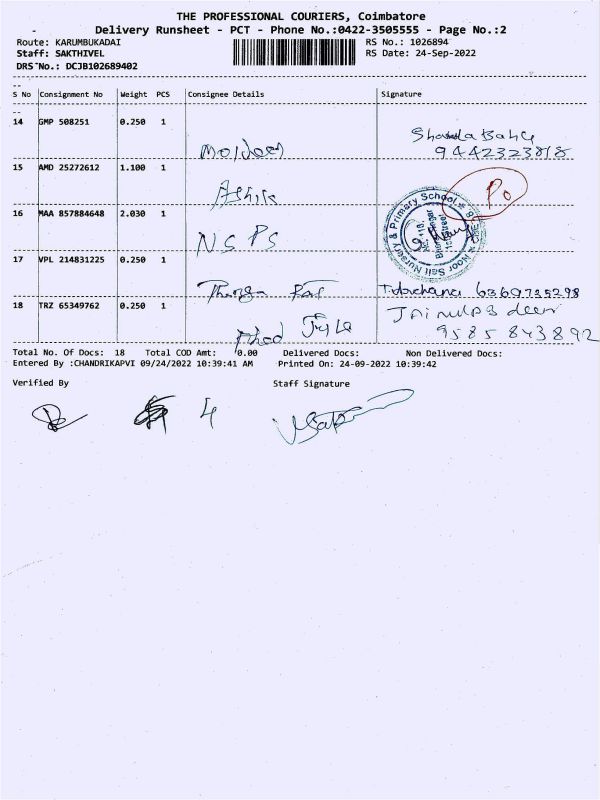 THE PROFESSIONAL COURIERS, Coimbatore
Delivery Runsheet - PCT - Phone No.:0422-3505555 - Page No.:2
Route: KARUMBUKADAI RS No.: 1026894
Staff: SAKTHIVEL RS Date: 24-Sep-2022
DRS No.: DCJB102689402
S No Consignment No Weight PCS Consignee Details Signature
14 GMP 508251 0.250 1
9442323818
15 AMD 25272612 1.100 1
Ashik
Po
16 MAA 857884648 2.030 1
NSPS
Noor Sail Nursery & Primary School
17 VPL 214831225 0.250 1
6369735298
18 TRZ 65349762 0.250 1
9585843892
Total No. Of Docs: 18 Total COD Amt: 0.00 Delivered Docs: Non Delivered Docs:
Entered By :CHANDRIKAPVI 09/24/2022 10:39:41 AM Printed On: 24-09-2022 10:39:42
Verified By Staff Signature